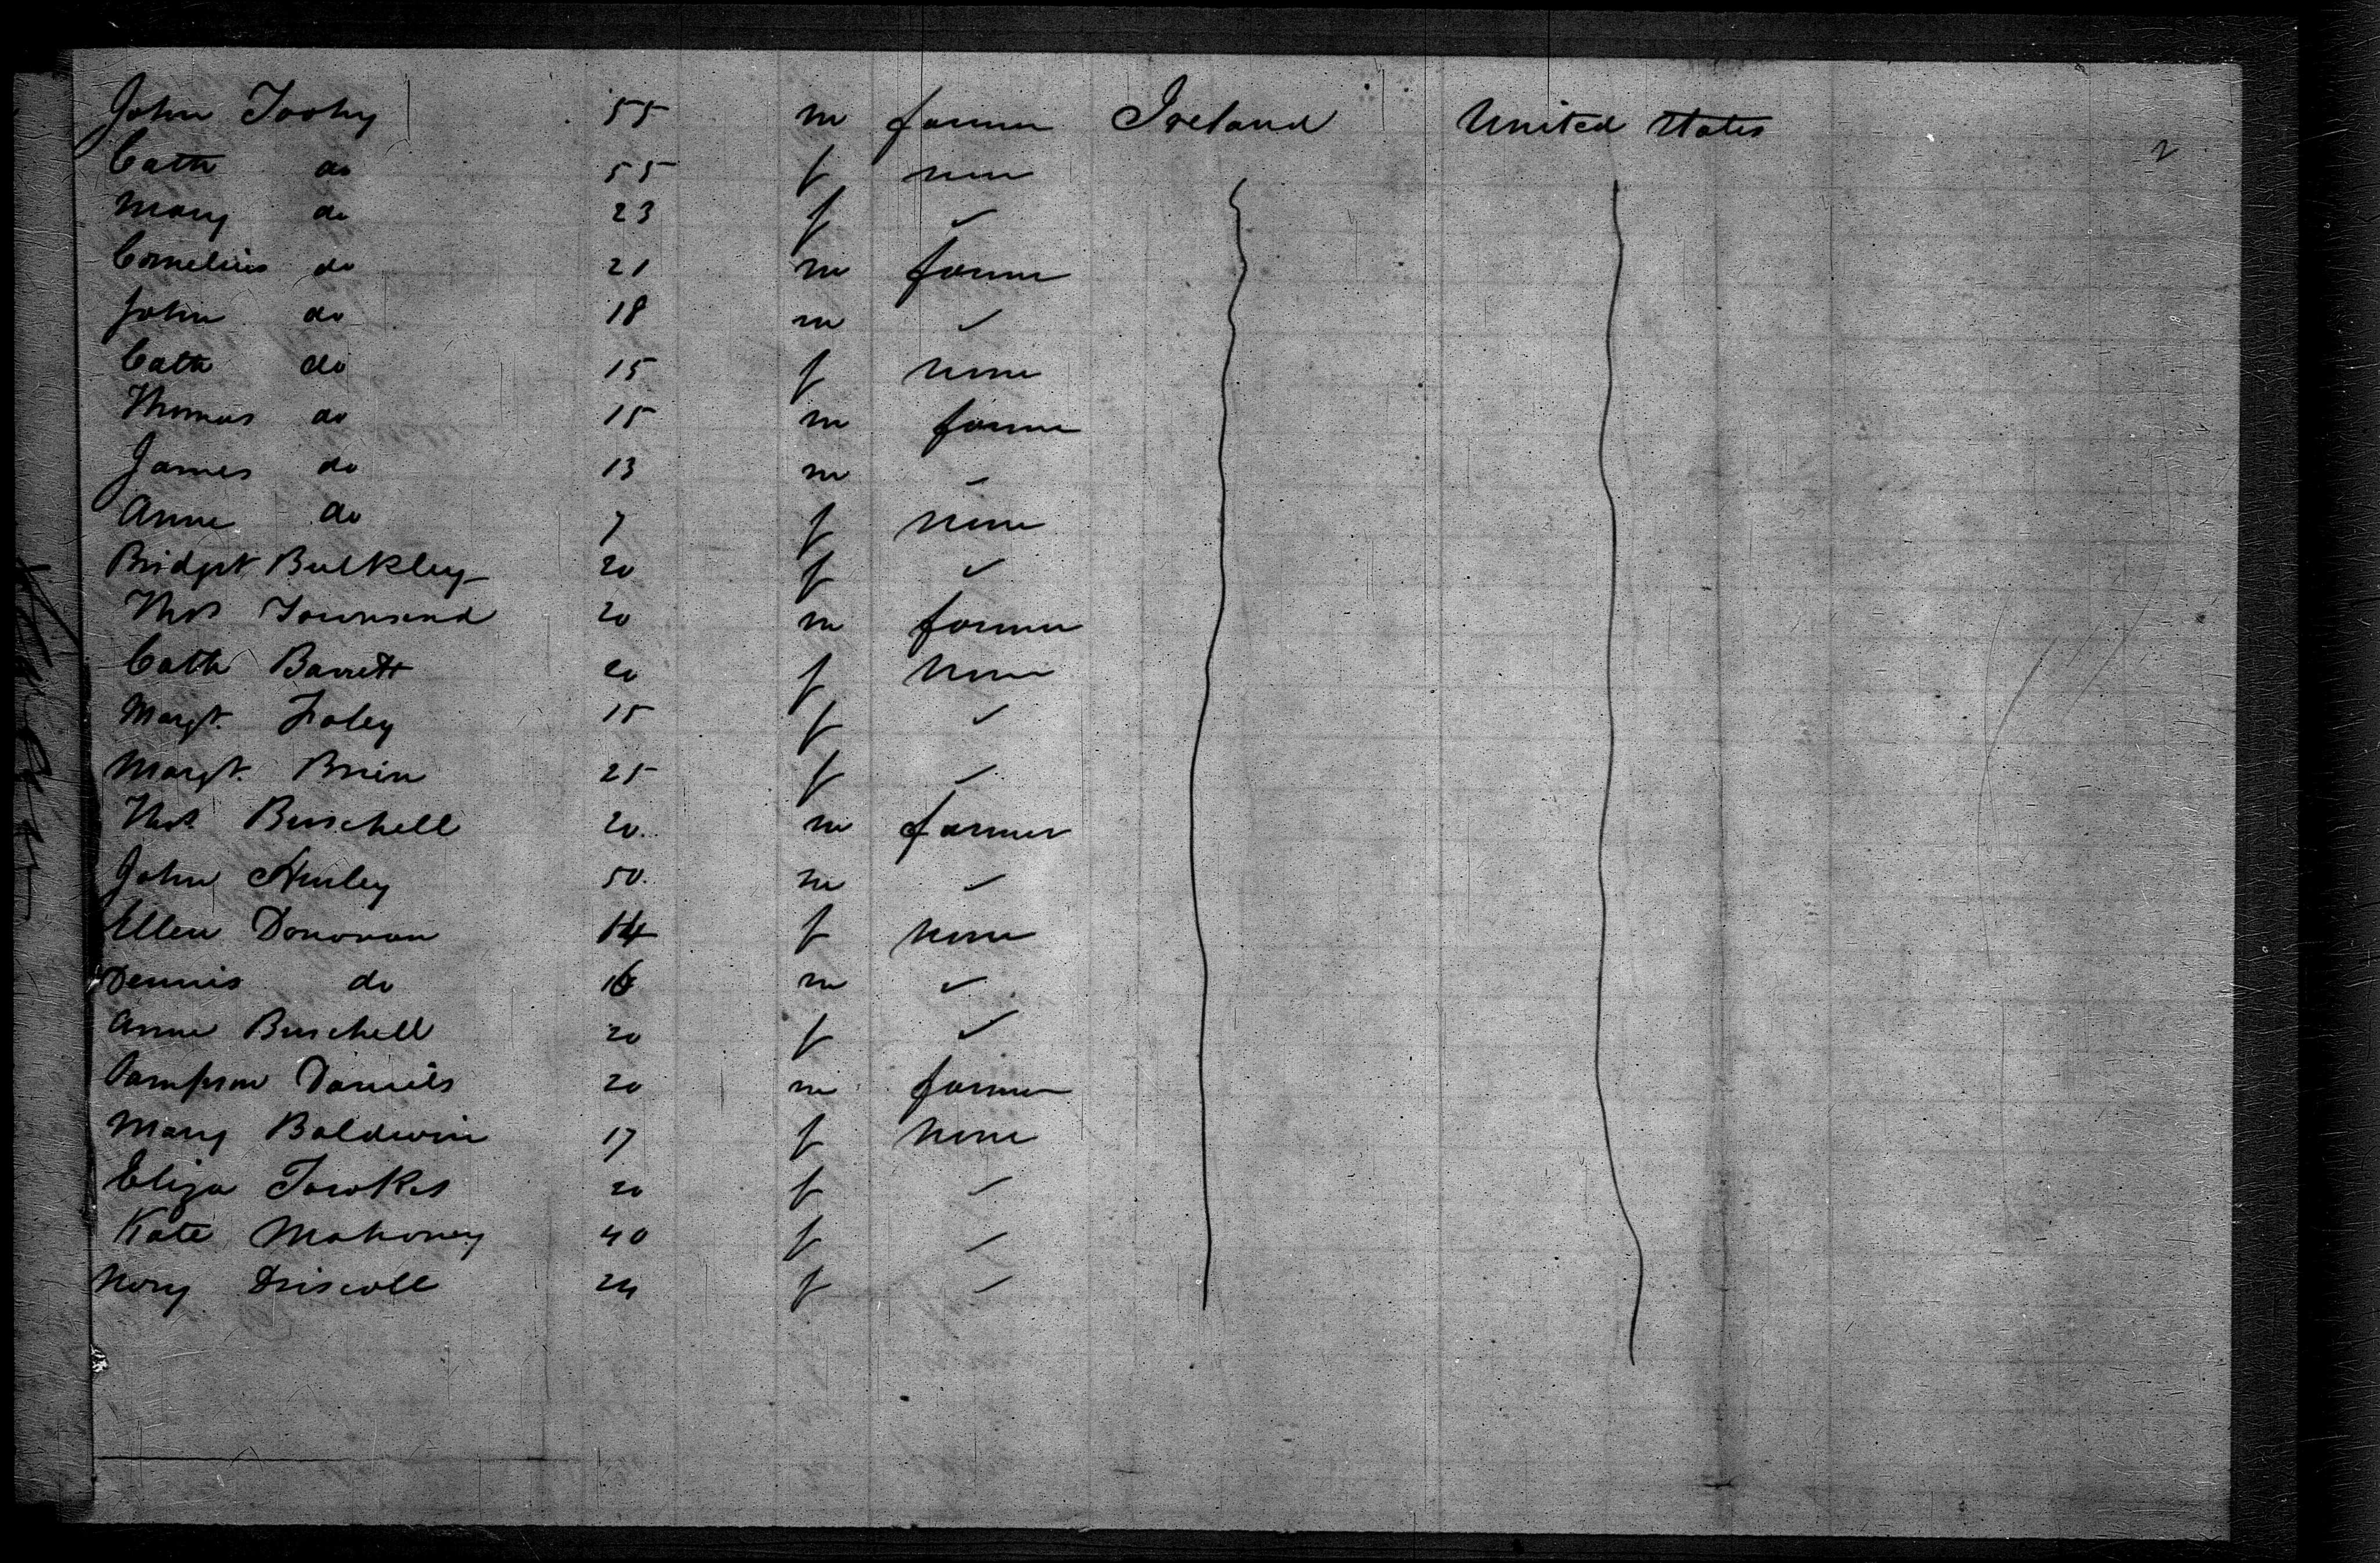 John Toohy 55 m farmer Ireland United States
2
Cath do 55 f none
Mary do 23 f ✓
Cornelius do 21 m farmer
John do 18 m ✓
Cath do 15 f none
Thomas do 15 m farmer
James do 13 m ✓
Anne do 7 f none
Bridget Bulkley 20 f ✓
Thos Townsend 20 m farmer
Cath Barrett 20 f none
Margt. Foley 15 f ✓
Margt. Brien 25 f ✓
Thos Burchell 20 m farmer
John Hurley 50 m ✓
Ellen Donovan 14 f none
Dennis do 16 m ✓
Anne Burchell 20 f ✓
Sampson Daniels 20 m farmer
Mary Baldwin 17 f none
Eliza 20 f ✓
Kate Mahoney 40 f ✓
Nory Driscoll 24 f ✓